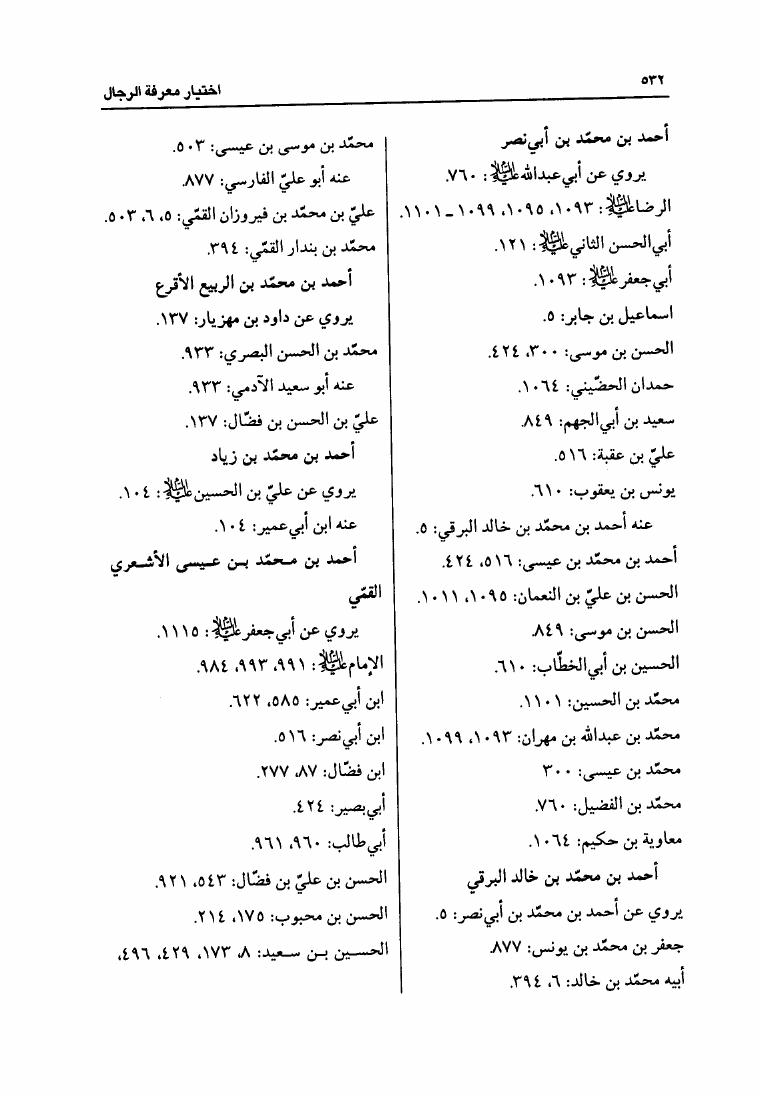 ٥٣٢
اختيار معرفة الرجال
أحمد بن محمّد بن أبي‌نصر
يروي عن أبي‌عبدالله عليه السلام: ٧٦٠.
الرضا عليه السلام: ١٠٩٣، ١٠٩٥، ١٠٩٩، ١٠٩٩ ـ ١١٠١.
أبي‌الحسن الثاني عليه السلام: ١٢١.
أبي‌جعفر عليه السلام: ١٠٩٣.
اسماعيل بن جابر: ٥.
الحسن بن موسى: ٣٠٠، ٤٢٤.
حمدان الحضّيني: ١٠٦٤.
سعيد بن أبي‌الجهم: ٨٤٩.
عليّ بن عقبة: ٥١٦.
يونس بن يعقوب: ٦١٠.
عنه أحمد بن محمّد بن خالد البرقي: ٥.
أحمد بن محمّد بن عيسى: ٥١٦، ٤٢٤.
الحسن بن عليّ بن النعمان: ١٠٩٥، ١٠١١.
الحسن بن موسى: ٨٤٩.
الحسين بن أبي‌الخطّاب: ٦١٠.
محمّد بن الحسين: ١١٠١.
محمّد بن عبدالله بن مهران: ١٠٩٣، ١٠٩٩.
محمّد بن عيسى: ٣٠٠
محمّد بن الفضيل: ٧٦٠.
معاوية بن حكيم: ١٠٦٤.
أحمد بن محمّد بن خالد البرقي
يروي عن أحمد بن محمّد بن أبي‌نصر: ٥.
جعفر بن محمّد بن يونس: ٨٧٧.
أبيه محمّد بن خالد: ٦، ٣٩٤.
محمّد بن موسى بن عيسى: ٥٠٣.
عنه أبو عليّ الفارسي: ٨٧٧.
عليّ بن محمّد بن فيروزان القمّي: ٥، ٦، ٥٠٣.
محمّد بن بندار القمّي: ٣٩٤.
أحمد بن محمّد بن الربيع الأقرع
يروي عن داود بن مهزيار: ١٣٧.
محمّد بن الحسن البصري: ٩٣٣.
عنه أبو سعيد الآدمي: ٩٣٣.
عليّ بن الحسن بن فضّال: ١٣٧.
أحمد بن محمّد بن زياد
يروي عن عليّ بن الحسين عليه السلام: ١٠٤.
عنه ابن أبي‌عمير: ١٠٤.
أحمد بن محمّد بن عيسى الأشعري
القمّي
يروي عن أبي‌جعفر عليه السلام: ١١١٥.
الإمام عليه السلام: ٩٩١، ٩٩٣، ٩٨٤.
ابن أبي‌عمير: ٥٨٥، ٦٢٢.
ابن أبي‌نصر: ٥١٦.
ابن فضّال: ٨٧، ٢٧٧.
أبي‌بصير: ٤٢٤.
أبي‌طالب: ٩٦٠، ٩٦١.
الحسن بن عليّ بن فضّال: ٥٤٣، ٩٢١.
الحسن بن محبوب: ١٧٥، ٢١٤.
الحسين بن سعيد: ٨، ١٧٣، ٤٢٩، ٤٩٦،